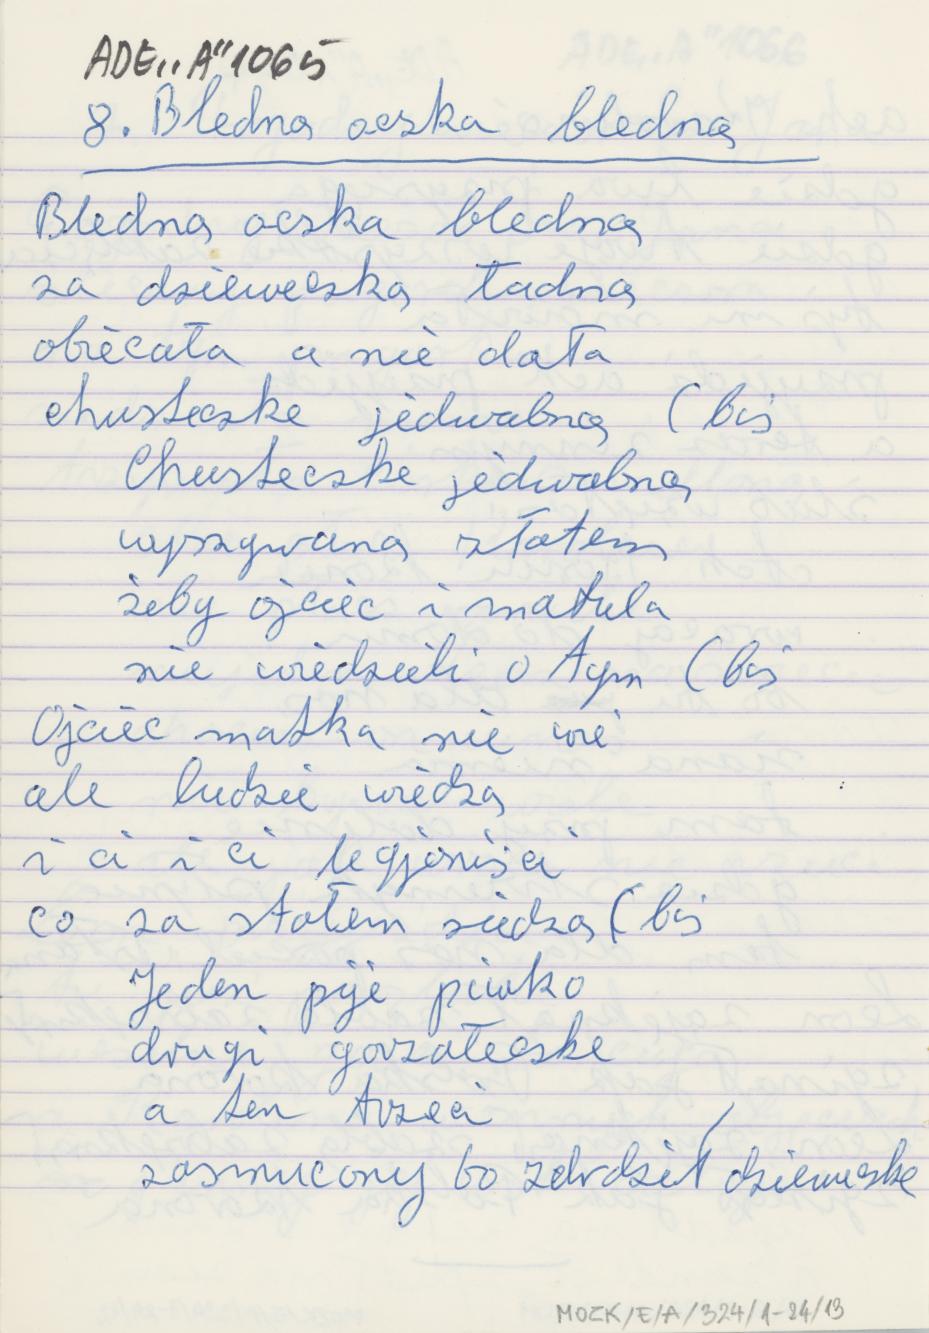 ADE„A"1065
8. Bledną ocska bledną
Bledną ocska bledną
za dziewecską ładną
obiecała a nie dała
chustecske jedwabną (bis
Chustecske jedwabną
wyszywaną złotem
żeby ojciec i matula
nie wiedzieli o tym (bis
Ojciec matka nie wie
ale ludzie wiedzą
i ci i ci legjoniści
co za stołem siedzą (bis
Jeden pije piwko
drugi gorzołecske
a ten trzeci
zasmucony bo zdrdził dziewecske
MOZK/E/A/324/1-24/13